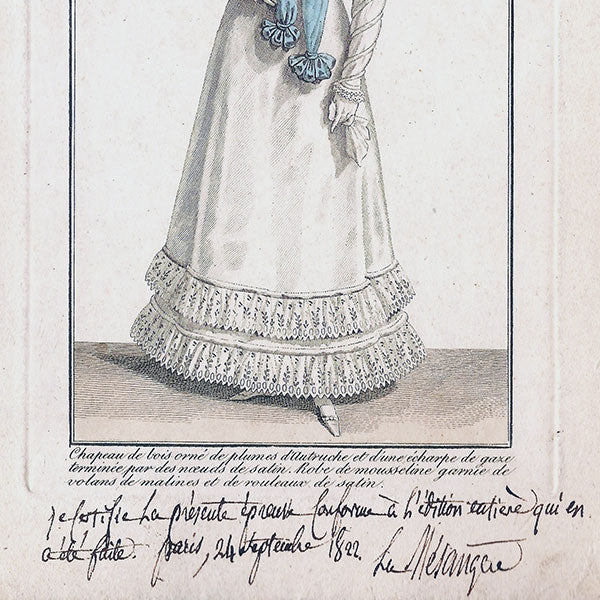 Chapeau de bois orné de plumes d'Autruche et d'une écharpe de gaze
terminée par des nœuds de satin. Robe de mousseline garnie de
volans de malines et de rouleaux de satin.
je certifie La présente épreuve Conforme à L'édition entière qui en
a été faite. paris, 24 septembre 1822. La Mésangère